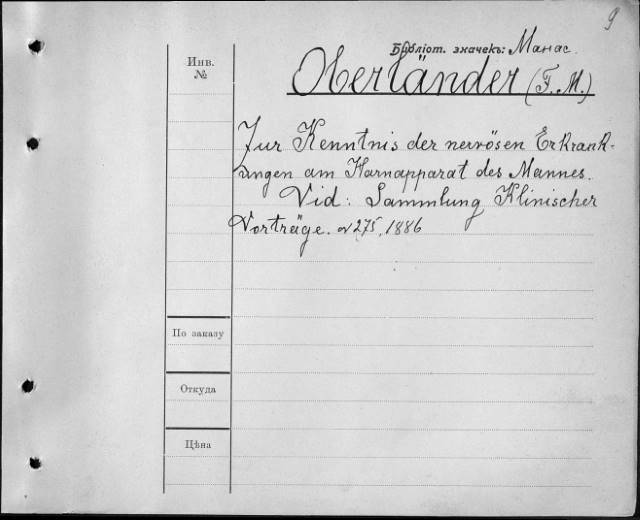 9
Бубліот. значекъ: Манас.
Инв.
№
Oberländer (F. M.)
Zur Kenntnis der nervösen Erkrank-
ungen am Harnapparat des Mannes.
Vid: Sammlung Klinischer
Vorträge. № 275, 1886
По заказу
Откуда
Цѣна